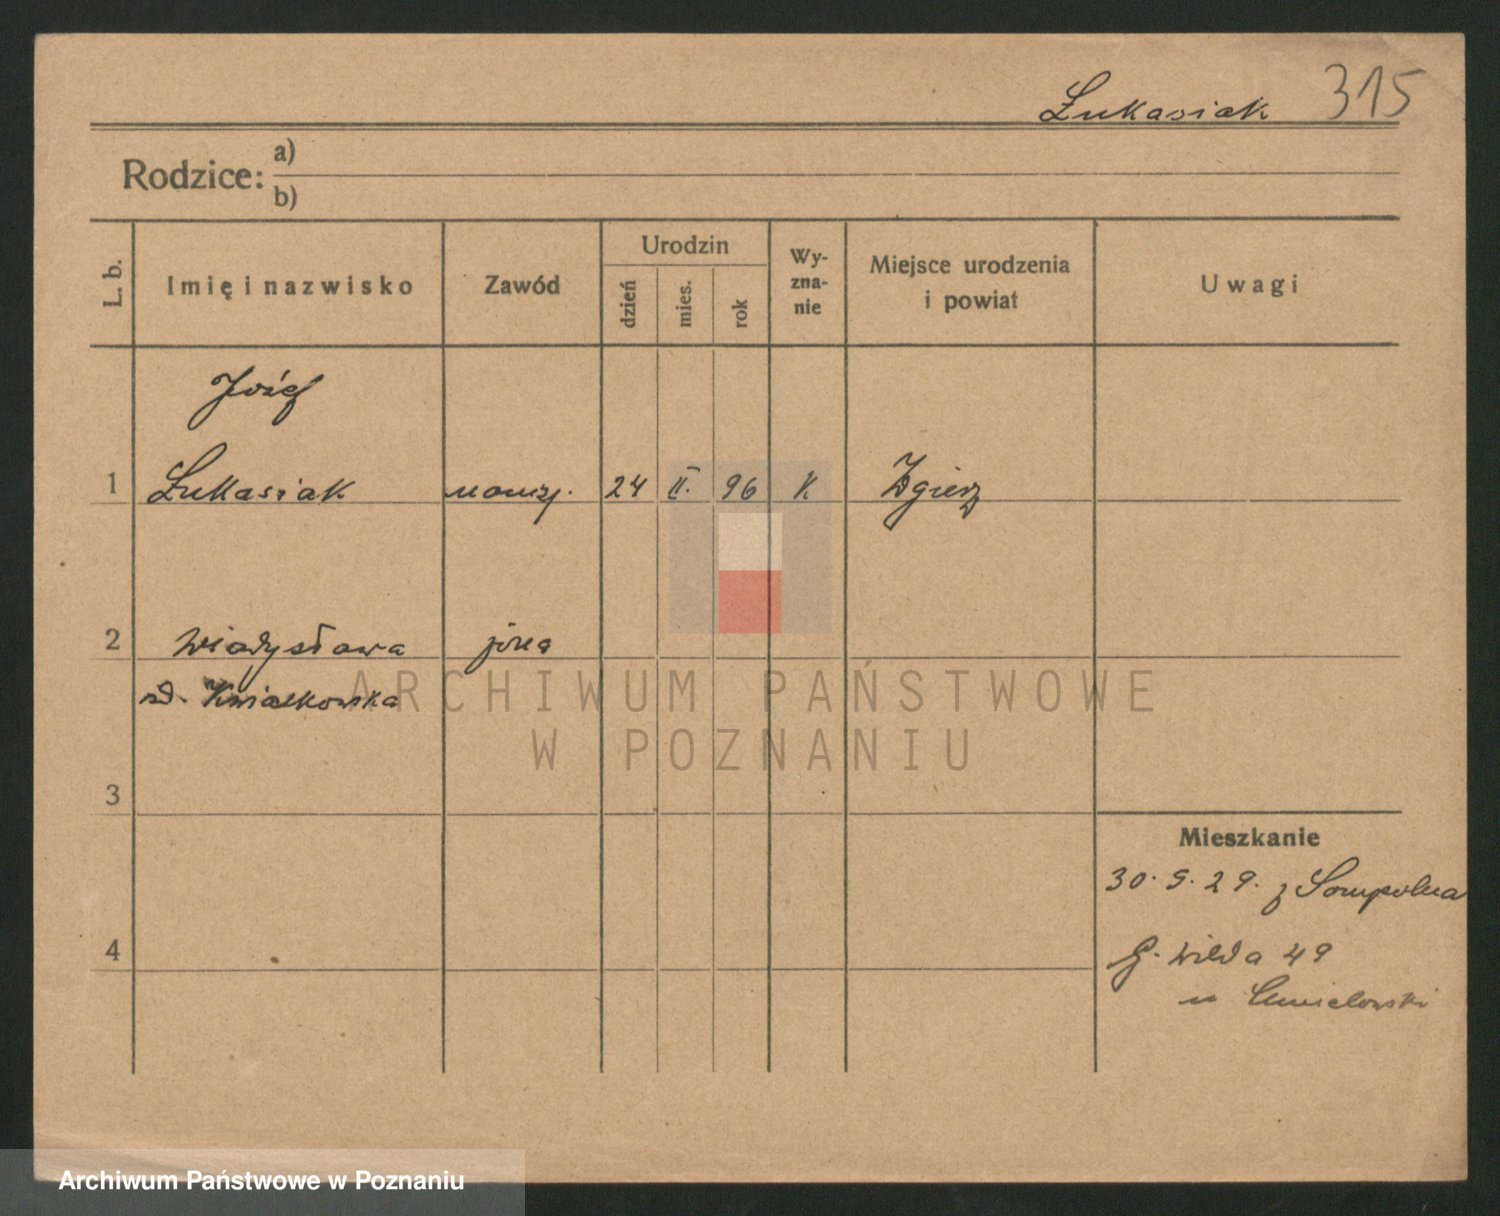 Łukasiak 315
Rodzice: a)
b)
L. b.
Imię i nazwisko
Zawód
Urodzin
dzień
mies.
rok
Wy-
zna-
nie
Miejsce urodzenia
i powiat
Uwagi
Józef
1 Łukasiak naucz. 24 II. 96 K Zgierz
2 Władysława żona
Kwiatkowska
3
4
Mieszkanie
30. 9. 29. z Sompolna
G. Wilda 49
u Chmielowski
ARCHIWUM PAŃSTWOWE
W POZNANIU
Archiwum Państwowe w Poznaniu